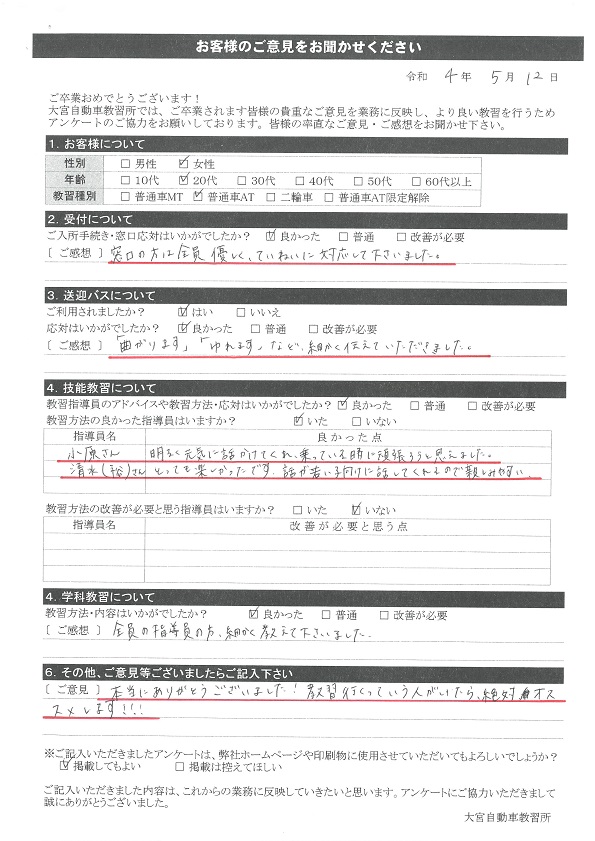 お客様のご意見をお聞かせください
令和 4年 5月 12日
ご卒業おめでとうございます!
大宮自動車教習所では、ご卒業されます皆様の貴重なご意見を業務に反映し、より良い教習を行うため
アンケートのご協力をお願いしております。皆様の率直なご意見・ご感想をお聞かせ下さい。
1. お客様について
性別 □ 男性 ☑ 女性
年齢 □ 10代 ☑ 20代 □ 30代 □ 40代 □ 50代 □ 60代以上
教習種別 □ 普通車MT ☑ 普通車AT □ 二輪車 □ 普通車AT限定解除
2. 受付について
ご入所手続き・窓口応対はいかがでしたか? ☑ 良かった □ 普通 □ 改善が必要
[ ご感想 ] 窓口の方は全員優しく、ていねいに対応して下さいました。
3. 送迎バスについて
ご利用されましたか? ☑ はい □ いいえ
応対はいかがでしたか? ☑ 良かった □ 普通 □ 改善が必要
[ ご感想 ] 「曲がります」「ゆれます」など、細かく伝えていただきました。
4. 技能教習について
教習指導員のアドバイスや教習方法・応対はいかがでしたか? ☑ 良かった □ 普通 □ 改善が必要
教習方法の良かった指導員はいますか? ☑ いた □ いない
指導員名 良かった点
小原さん 明るく元気に話かけてくれ、乗っている時に頑張ろうと思えました。
清水(裕)さん とっても楽しかったです。話が若い子向けに話してくれるので親しみやすい
教習方法の改善が必要と思う指導員はいますか? □ いた ☑ いない
指導員名 改善が必要と思う点
4. 学科教習について
教習方法・内容はいかがでしたか? ☑ 良かった □ 普通 □ 改善が必要
[ ご感想 ] 全員の指導員の方、細かく教えて下さいました。
6. その他、ご意見等ございましたらご記入下さい
[ ご意見 ] 本当にありがとうございました! 教習行くっていう人がいたら、絶対オス
スメします!!!
※ご記入いただきましたアンケートは、弊社ホームページや印刷物に使用させていただいてもよろしいでしょうか?
☑ 掲載してもよい □ 掲載は控えてほしい
ご記入いただきました内容は、これからの業務に反映していきたいと思います。アンケートにご協力いただきまして
誠にありがとうございました。
大宮自動車教習所